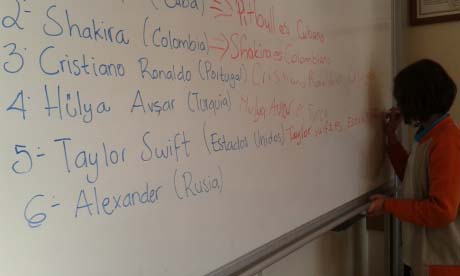 (Cuba) => Pitbull es Cubano
2- Shakira (Colombia) -> Shakira es Colombiana
3- Cristiano Ronaldo (Portugal) Cristiano Ronaldo
4- Hülya Avşar (Turquia) Hulya Avşar es Turca
5- Taylor Swift (Estados Unidos) Taylor Swift es
6- Alexander (Rusia)